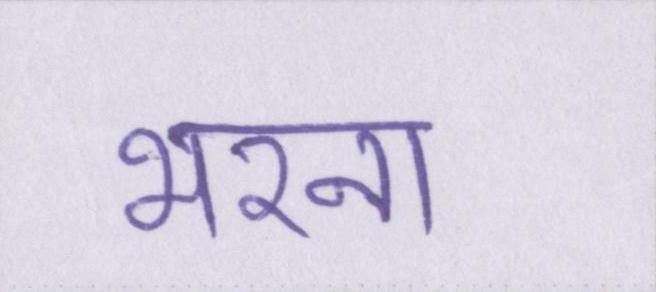 भरना